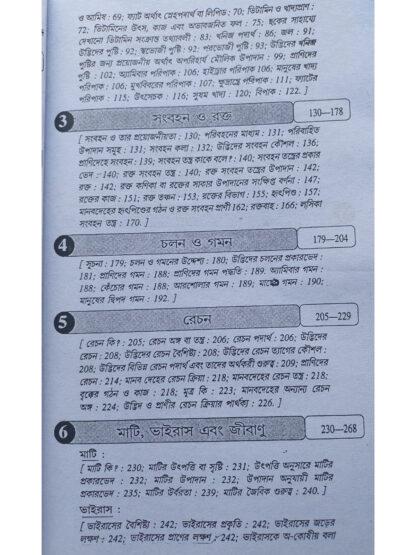 ও আমিষ : 69; ফ্যাট অর্থাৎ স্নেহপদার্থ বা লিপিড : 70; ভিটামিন ও খাদ্যপ্রাণ :
72; ভিটামিনের উৎস, কাজ এবং অভাবজনিত ফল : 75; ছকের সাহায্যে
দেখানো ভিটামিন সংক্রান্ত তথ্যাবলী : 83; খনিজ পদার্থ : 86; জল : 91;
উদ্ভিদের পুষ্টি : 92; স্বভোজী পুষ্টি : 92; পরভোজী পুষ্টি : 93; উদ্ভিদের খনিজ
পুষ্টির জন্য প্রয়োজনীয় অর্থাৎ অপরিহার্য মৌলিক উপাদান : 99; প্রাণিদের
পুষ্টি : 102; অ্যামিবার পরিপাক : 106; হাইড্রার পরিপাক 106; মানুষের খাদ্য
পরিপাক : 106; মুখবিবরের পরিপাক : 107; ক্ষুদ্রান্ত্রে পরিপাক : 111; ফ্যাটের
পরিপাক : 115; উৎসেচক : 116; সুষম খাদ্য : 120; বিপাক : 122. ]
3 সংবহন ও রক্ত 130—178
[ সংবহন ও তার প্রয়োজনীয়তা : 130; পরিবহনের মাধ্যম : 131; পরিবাহিত
উপাদান সমূহ : 131; সংবহন কলা : 132; উদ্ভিদের সংবহন কৌশল : 136;
প্রাণিদেহে সংবহন : 139; সংবহন তন্ত্র কাকে বলে? : 140; সংবহন তন্ত্রের প্রকার
ভেদ : 140; রক্ত সংবহন তন্ত্র : 140; রক্ত সংবহন তন্ত্রের উপাদান : 142;
রক্ত : 142; রক্ত কণিকা বা রক্তের সাকার উপাদানের সংক্ষিপ্ত বর্ণনা : 147;
রক্তের কাজ : 151; রক্ত তঞ্চন : 153; রক্তের বিভাগ : 155; হৃৎপিণ্ড : 157;
মানবদেহের হৃৎপিণ্ডের গঠন ও রক্ত সংবহন প্রণালী 162; রক্তবাহ : 166; লসিকা
সংবহন তন্ত্র : 170. ]
4 চলন ও গমন 179—204
[ সূচনা : 179; চলন ও গমনের উদ্দেশ্য : 180; উদ্ভিদের চলনের প্রকারভেদ :
181; প্রাণিদের গমন : 188; প্রাণিদের গমন পদ্ধতি : 189. অ্যামিবার গমন :
188; কেঁচোর গমন : 188; আরশোলার গমন : 189; মাছের গমন : 190;
মানুষের দ্বিপদ গমন : 192. ]
5 রেচন 205—229
[ রেচন কি? : 205; রেচন অঙ্গ বা তন্ত্র : 206; রেচন পদার্থ : 206; উদ্ভিদের
রেচন : 208; উদ্ভিদের রেচন বৈশিষ্ট্য : 208; উদ্ভিদের রেচন ত্যাগের কৌশল :
208; উদ্ভিদের বিভিন্ন রেচন পদার্থ এবং তাদের অর্থকরী গুরুত্ব : 209; প্রাণিদের
রেচন : 214; মানব দেহের রেচন ক্রিয়া : 218; মানবদেহের রেচন তন্ত্র : 218;
বৃক্কের গঠন ও কাজ : 218; মূত্র কি : 223; মানবদেহের অন্যান্য রেচন
অঙ্গ : 224; উদ্ভিদ ও প্রাণীর রেচন ক্রিয়ার পার্থক্য : 226. ]
6 মাটি, ভাইরাস এবং জীবাণু 230—268
মাটি :
[ মাটি কি? : 230; মাটির উৎপত্তি বা সৃষ্টি : 231; উৎপত্তি অনুসারে মাটির
প্রকারভেদ : 232; মাটির উপাদান : 232; উপাদান অনুযায়ী মাটির
প্রকারভেদ : 235; মাটির উর্বরতা : 239; মাটির জৈবিক গুরুত্ব : 240. ]
ভাইরাস :
[ ভাইরাসের বৈশিষ্ট্য : 242; ভাইরাসের প্রকৃতি : 242; ভাইরাসের জড়ের
লক্ষণ : 242; ভাইরাসের প্রাণের লক্ষণ : 242; ভাইরাসকে অ-কোষীয় বলা